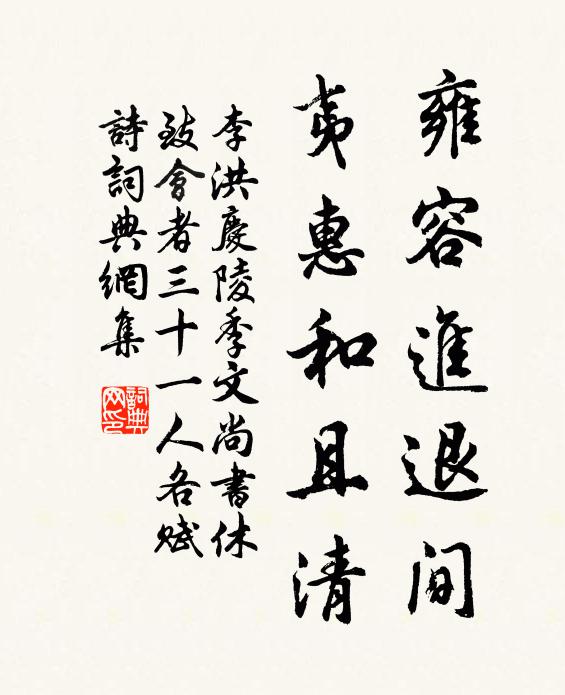 雍容進退间
夷惠和且清
李洪慶陵季文尚書休
致會者三十一人各赋
詩詞典網集
詞典网印